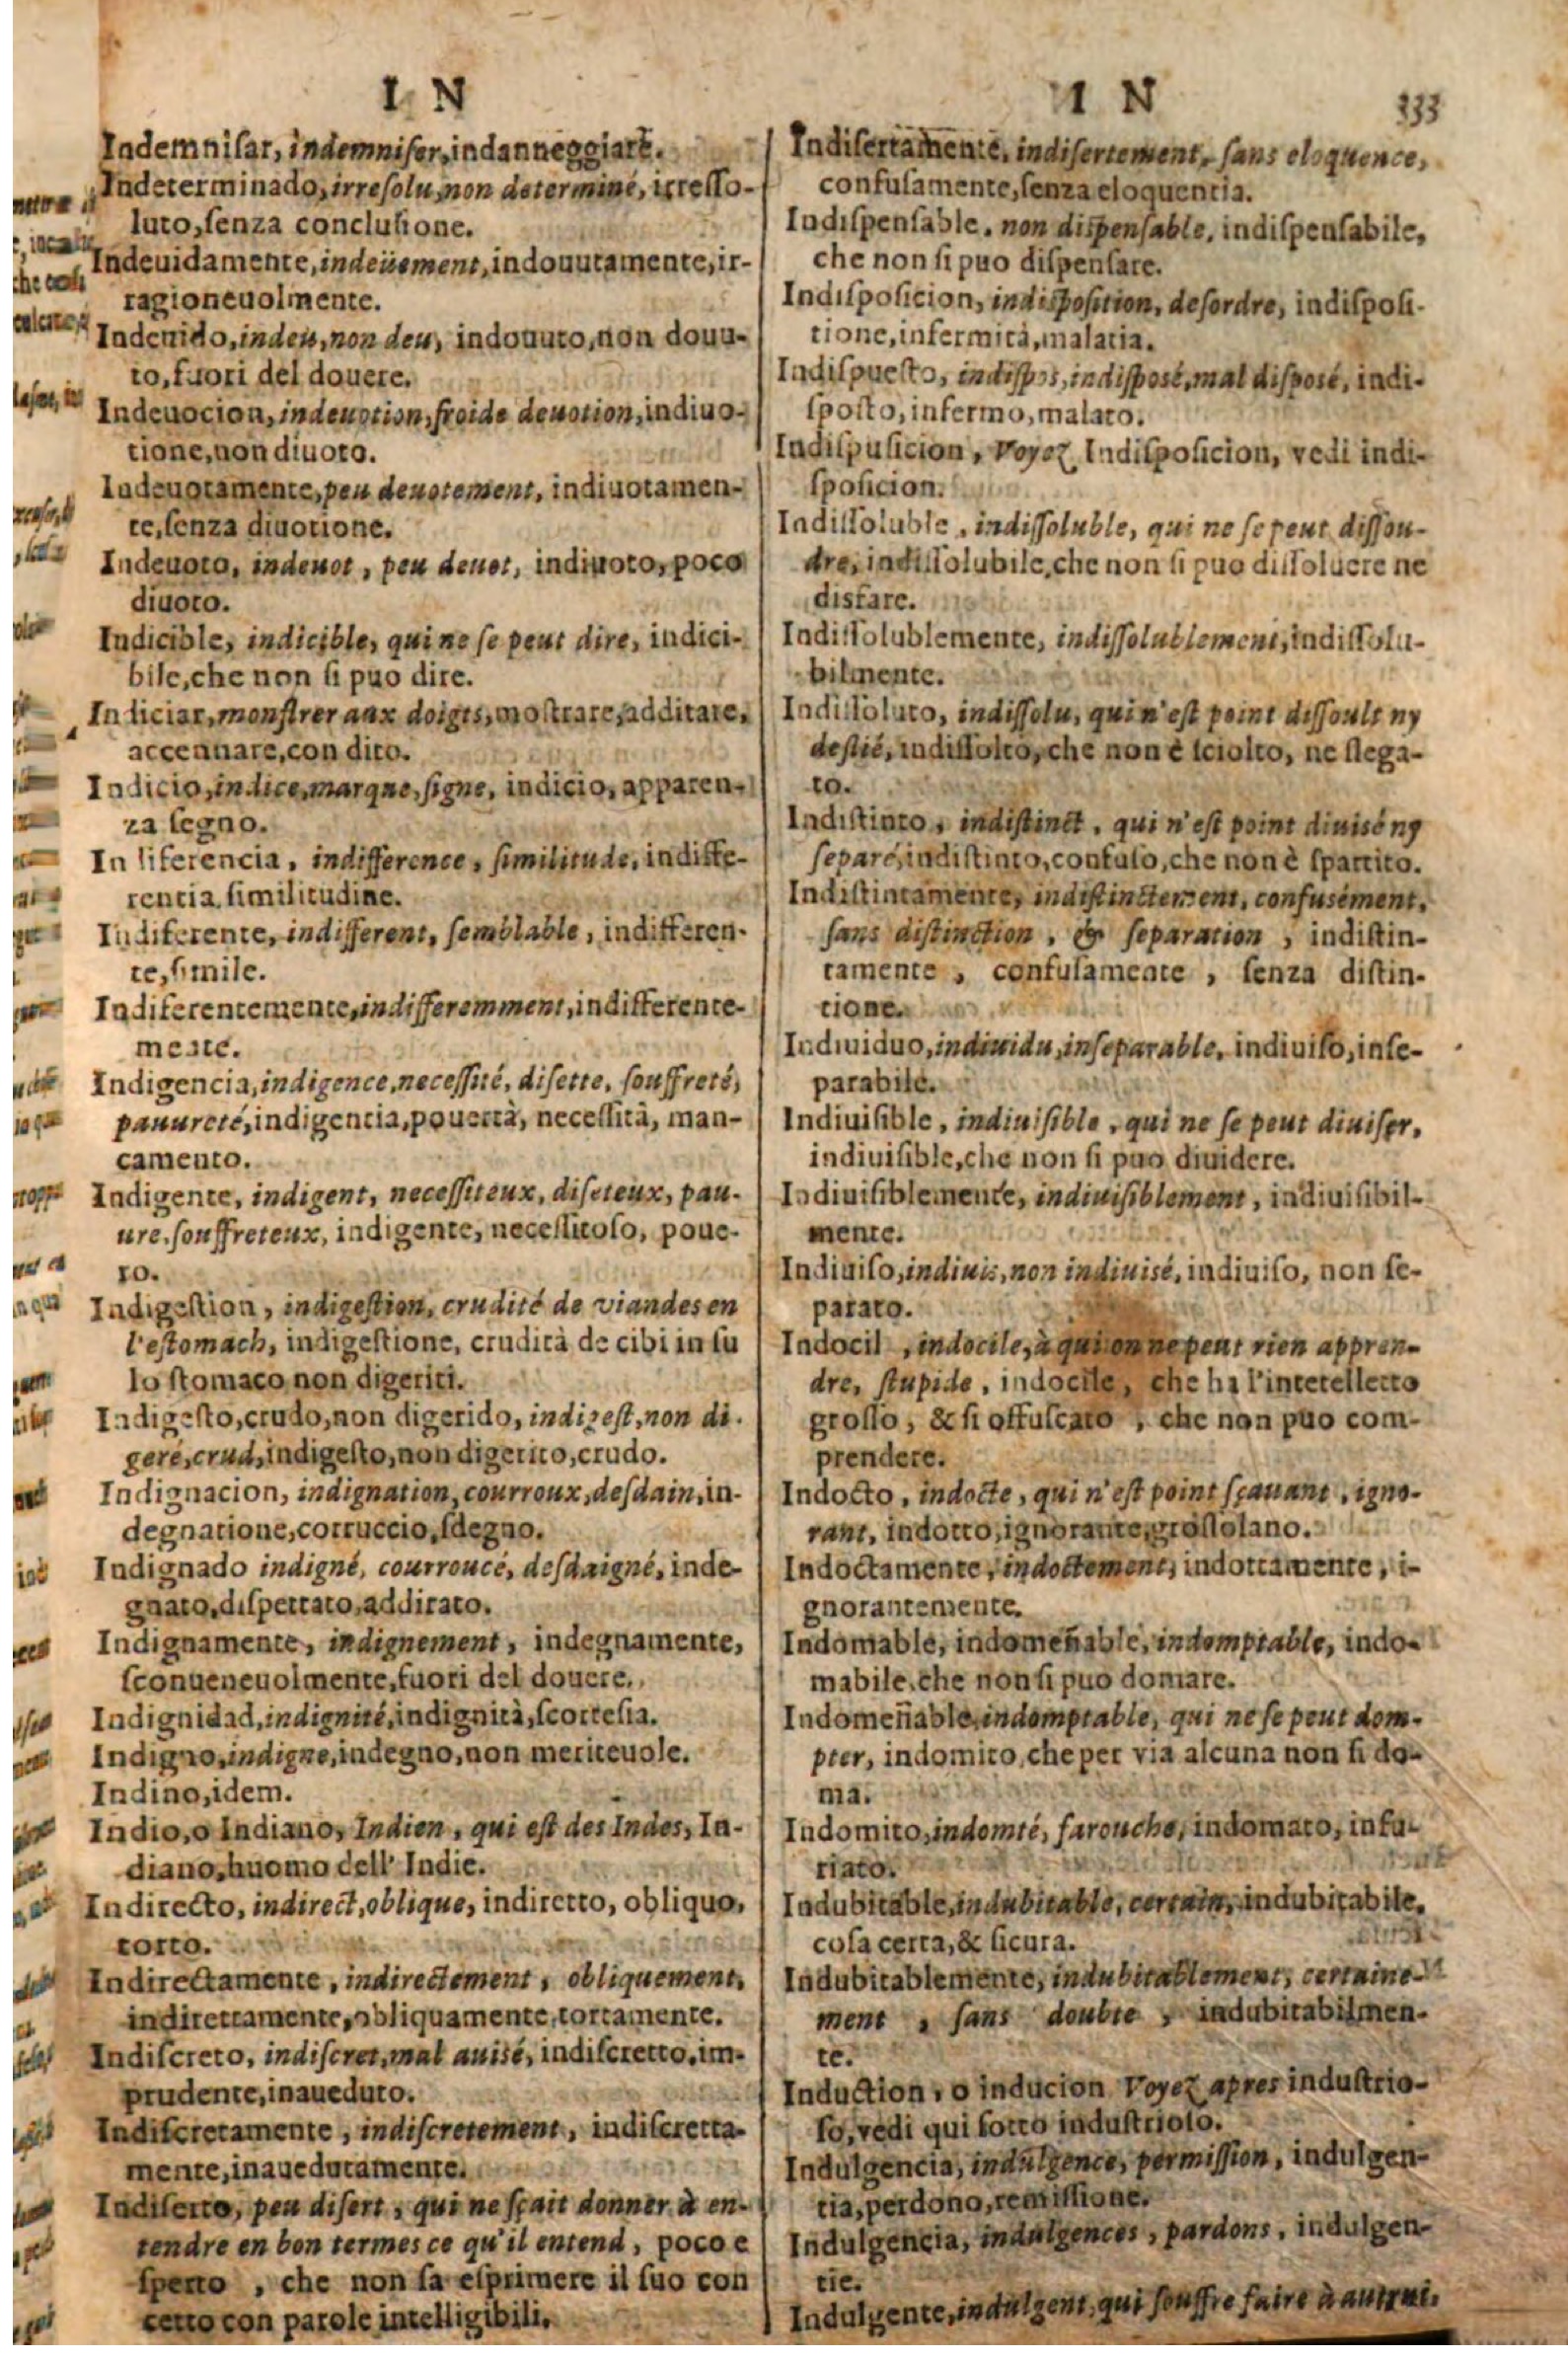 I N
Indemniſar, indemniſer, indanneggiare.
Indeterminado, irreſolu, non determiné, irreſſo-
luto, ſenza concluſione.
Indeuidamente, indeüement, indouutamente, ir-
ragioneuolmente.
Indeuido, indeu, non deu, indouuto, non douu-
to, fuori del douere.
Indeuocion, indeuotion, froide deuotion, indiuo-
tione, non diuoto.
Indeuotamente, peu deuotement, indiuotamen-
te, ſenza diuotione.
Indeuoto, indeuot, peu deuot, indiuoto, poco
diuoto.
Indicible, indicible, qui ne ſe peut dire, indici-
bile, che non ſi puo dire.
Indiciar, monſtrer aux doigts, moſtrare, additare,
accennare, con dito.
Indicio, indice, marque, ſigne, indicio, apparen-
za ſegno.
Indiferencia, indifference, ſimilitude, indiffe-
rentia, ſimilitudine.
Indiferente, indifferent, ſemblable, indifferen-
te, ſimile.
Indiferentemente, indifferemment, indifferente-
mente.
Indigencia, indigence, neceſſité, diſette, ſouffreté,
pauureté, indigentia, pouertà, neceſſità, man-
camento.
Indigente, indigent, neceſſiteux, diſeteux, pau-
ure, ſouffreteux, indigente, neceſſitoſo, poue-
ro.
Indigeſtion, indigeſtion, crudité de viandes en
l'eſtomach, indigeſtione, crudità de cibi in ſu
lo ſtomaco non digeriti.
Indigeſto, crudo, non digerido, indigeſt, non di-
geré, crud, indigeſto, non digerito, crudo.
Indignacion, indignation, courroux, deſdain, in-
degnatione, corruccio, ſdegno.
Indignado indigné, courroucé, deſdaigné, inde-
gnato, diſpettato, addirato.
Indignamente, indignement, indegnamente,
ſconueneuolmente, fuori del douere.
Indignidad, indignité, indignità, ſcorteſia.
Indigno, indigne, indegno, non meriteuole.
Indino, idem.
Indio, o Indiano, Indien, qui eſt des Indes, In-
diano, huomo dell' Indie.
Indirecto, indirect, oblique, indiretto, obliquo,
torto.
Indirectamente, indirectement, obliquement,
indirettamente, obliquamente, tortamente.
Indiſcreto, indiſcret, mal auiſé, indiſcretto, im-
prudente, inaueduto.
Indiſcretamente, indiſcretement, indiſcretta-
mente, inauedutamente.
Indiſerto, peu diſert, qui ne ſçait donner à en-
tendre en bon termes ce qu'il entend, poco e
ſperto, che non ſa eſprimere il ſuo con
cetto con parole intelligibili.
I N 333
Indiſertamente, indiſertement, ſans eloquence,
confuſamente, ſenza eloquentia.
Indiſpenſable, non diſpenſable, indiſpenſabile,
che non ſi puo diſpenſare.
Indiſpoſicion, indiſpoſition, deſordre, indiſpoſi-
tione, infermità, malatia.
Indiſpueſto, indiſpos, indiſposé, mal diſposé, indi-
ſpoſto, infermo, malato.
Indiſpuſicion, Voyez Indiſpoſicion, vedi indi-
ſpoſicion.
Indiſſoluble, indiſſoluble, qui ne ſe peut diſſou-
dre, indiſſolubile, che non ſi puo diſſoluere ne
disfare.
Indiſſolublemente, indiſſolublement, indiſſolu-
bilmente.
Indiſſoluto, indiſſolu, qui n'eſt point diſſoult ny
deſlié, indiſſolto, che non è ſciolto, ne ſlega-
to.
Indiſtinto, indiſtinct, qui n'eſt point diuisé ny
separé, indiſtinto, confuſo, che non è ſpartito.
Indiſtintamente, indiſtinctement, confusément,
ſans diſtinction, & ſeparation, indiſtin-
tamente, confuſamente, ſenza diſtin-
tione.
Indiuiduo, indiuidu, inſeparable, indiuiſo, inſe-
parabile.
Indiuiſible, indiuiſible, qui ne ſe peut diuiſer,
indiuiſible, che non ſi puo diuidere.
Indiuiſiblemente, indiuiſiblement, indiuiſibil-
mente.
Indiuiſo, indiuis, non indiuisé, indiuiſo, non ſe-
parato.
Indocil, indocile, à qui on ne peut rien appren-
dre, ſtupide, indocile, che ha l'intetelletto
groſſo, & ſi offuſcato, che non puo com-
prendere.
Indocto, indocte, qui n'eſt point ſçauant, igno-
rant, indotto, ignorante, groſſolano.
Indoctamente, indoctement, indottamente, i-
gnorantemente.
Indomable, indomeñable, indomptable, indo-
mabile, che non ſi puo domare.
Indomeñable, indomptable, qui ne ſe peut dom-
pter, indomito, che per via alcuna non ſi do-
ma.
Indomito, indomté, farouche, indomato, infu-
riato.
Indubitable, indubitable, certain, indubitabile,
coſa certa, & ſicura.
Indubitablemente, indubitablement, certaine-
ment, ſans doubte, indubitabilmen-
te.
Induction, o inducion Voyez apres induſtrio-
ſo, vedi qui ſotto induſtrioſo.
Indulgencia, indulgence, permiſſion, indulgen-
tia, perdono, remiſſione.
Indulgencia, indulgences, pardons, indulgen-
tie.
Indulgente, indulgent, qui ſouffre faire à autrui,